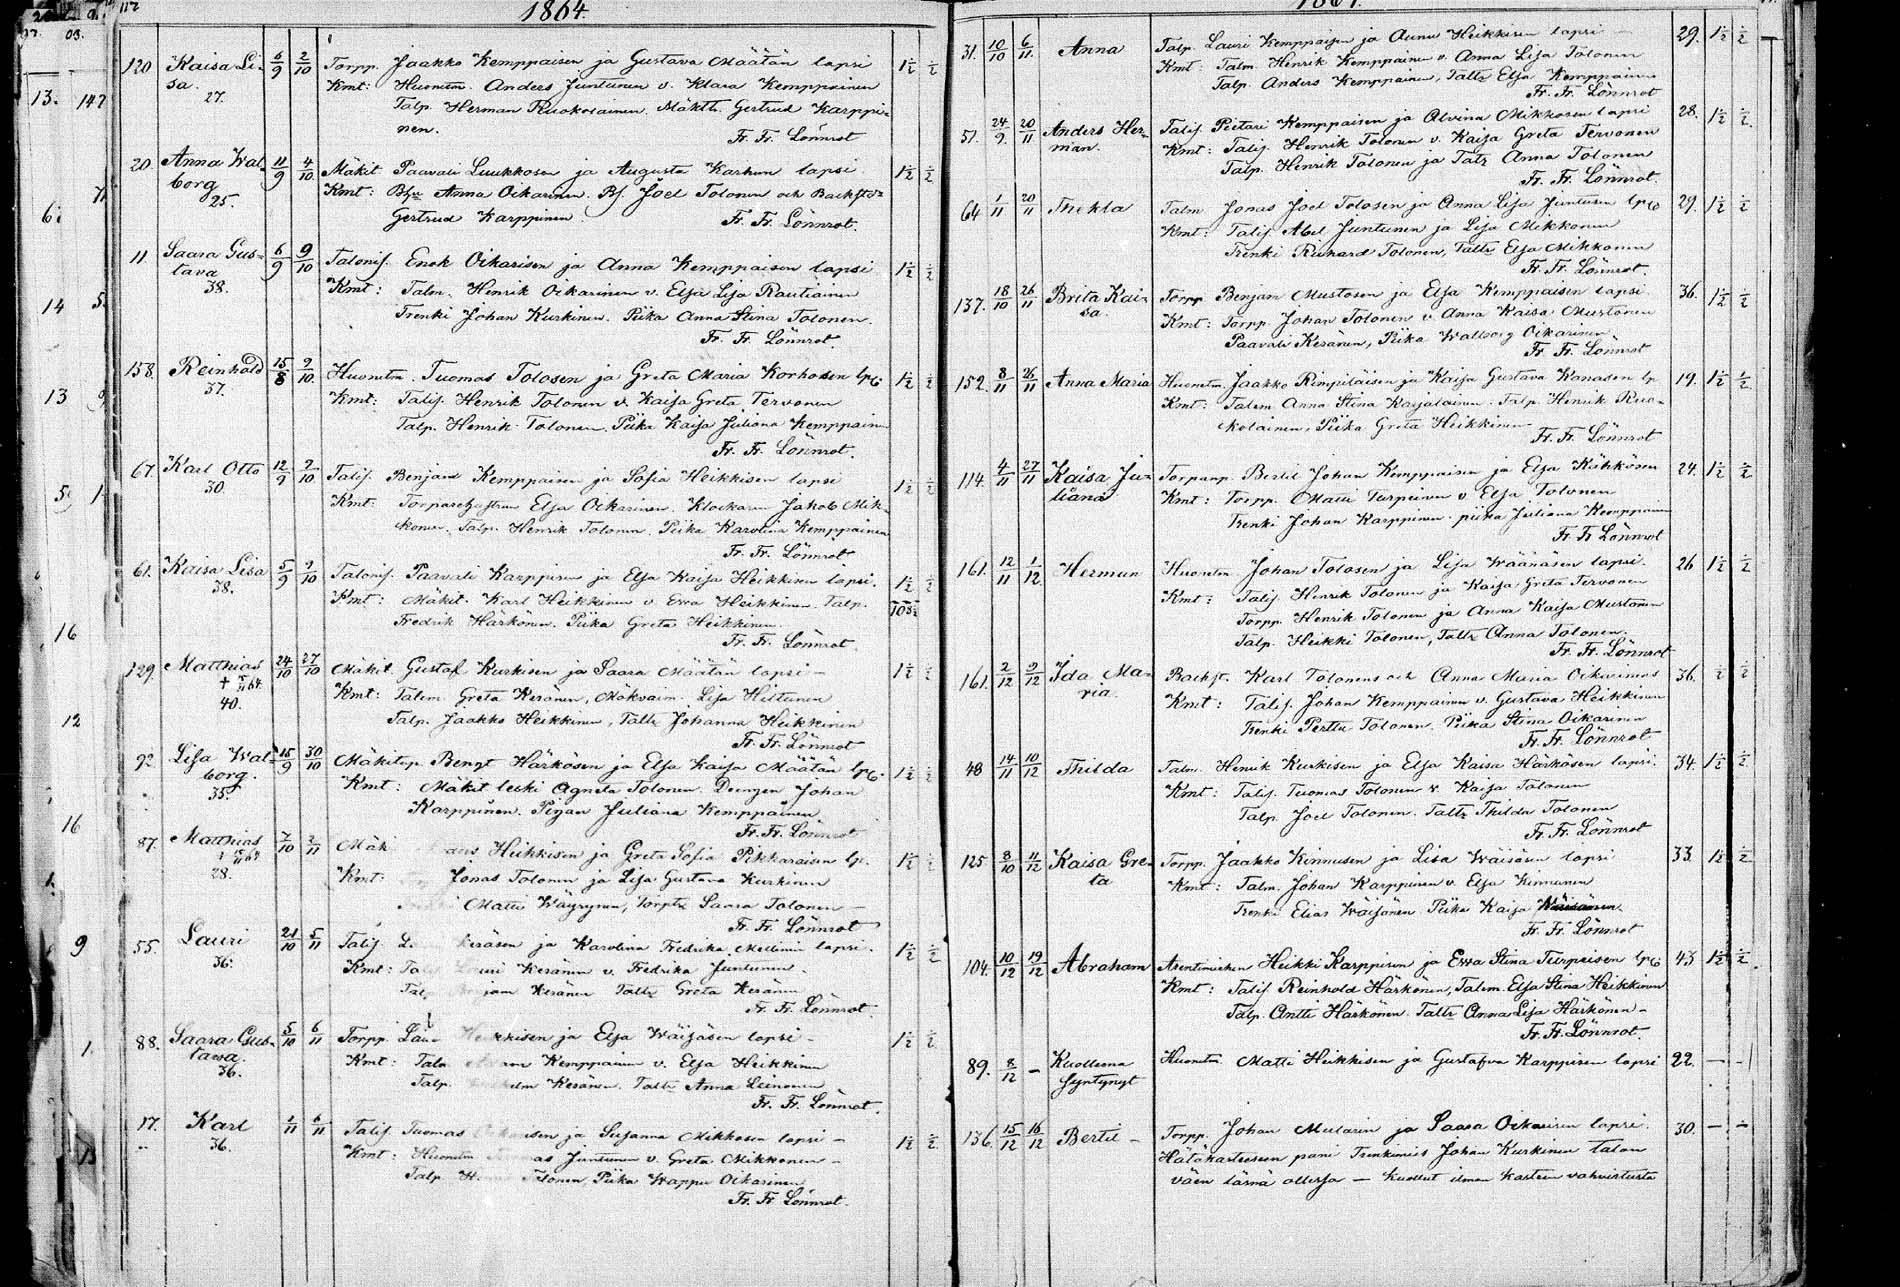 112
1864.
120 Kaisa Li- 6/9 2/10 Torpp. Jaakko Kemppaisen ja Gustava Määtän lapsi 1½ ½
sa. Kmt: Huonetm. Anders Juntunen v. Klara Kemppainen
27. Talp. Herman Ruokolainen. Mäkttr. Gertrud Karppi-
nen. Fr. Fr. Lönnrot
20. Anna Wal- 11/9 4/10 Mäkit Paavali Luukkosen ja Augusta Karhun lapsi 1½ ½
borg Kmt: Bhu Anna Oikarinen. Bf. Joel Tolonen och Backstdr
25. Gertrud Karppinen Fr. Fr. Lönnrot.
11 Saara Gus- 6/9 9/10 Talonis. Enok Oikarisen ja Anna Kemppaisen lapsi 1½ ½
tava Kmt: Talm. Henrik Oikarinen v. Elsa Lisa Rautiainen
38. Trenki Johan Kurkinen. Piika Anna Stina Tolonen.
Fr. Fr. Lönnrot.
158. Reinhold 15/8 9/10 Huonetm. Tuomas Tolosen ja Greta Maria Korhosen lps 1½ ½
37. Kmt: Talis. Henrik Tolonen v. Kaisa Greta Tervonen
Talp. Henrik Tolonen. Piika Kaisa Juliana Kemppainen
Fr. Fr. Lönnrot.
67. Karl Otto 12/9 9/10 Talis. Benjam Kemppaisen ja Sofia Heikkisen lapsi 1½ ½
30. Kmt: Torparehustrun Elsa Oikarinen. Klockaren Jakob Mik-
konen. Talp. Henrik Tolonen. Piika Karolina Kemppainen
Fr. Fr. Lönnrot
61. Kaisa Lisa 5/9 9/10 Talonis. Paavali Karppisen ja Elsa Kaisa Heikkisen lapsi. 1½ ½
38. Kmt: Mäkit. Karl Heikkinen v. Ewa Heikkinen. Talp.
Fredrik Härkönen. Piika Greta Heikkinen.
Fr. Fr. Lönnrot.
129. Matthias 24/10 27/10 Mäkit. Gustaf Kurkisen ja Saara Määtän lapsi - 1½ ½
Kmt: Talem. Greta Keränen, Mäkvaim. Lisa Hiltunen
40. Talp. Jaakko Heikkinen, Taltr Johanna Heikkinen
Fr. Fr. Lönnrot
92 Lisa Wal- 15/9 30/10 Mäkitsp. Bengt Härkösen ja Elsa Kaisa Määtän lps. 1½ ½
borg. Kmt: Mäkit leski Agneta Tolonen. Drengen Johan
35. Karppinen. Pigan Juliana Kemppainen.
Fr. Fr. Lönnrot
87. Matthias 7/10 2/11 Mäk Heikkisen ja Greta Sofia Pikkaraisen lp. 1½ ½
28. Kmt: Jonas Tolonen ja Lisa Gustava Kurkinen
Matti Wäyrynen, Torptr Saara Tolonen -
Fr. Fr. Lönnrot
55. Lauri 21/10 5/11 Talis. Keräsen ja Karolina Fredrika lapsi. 1½ ½
36. Kmt: Lauri Keränen v. Fredrika Juntunen.
Keränen Taltr Greta Keränen
Fr. Fr. Lönnrot.
88. Saara Gus- 5/10 6/11 Torpp. Heikkisen ja Elsa Wäisäsen lapsi - 1½ ½
tava. Kmt: Talm Kemppainen v. Elsa Heikkinen
36. Talp. Keränen. Taltr Anna Leinonen
Fr. Fr. Lönnrot.
17. Karl 1/11 6/11 Talis. Tuomas Oikarisen ja Susanna Mikkosen lapsi - 1½ ½
36. Kmt: Huonetm Juntunen v. Greta Mikkonen -
Talp. Tolonen, Piika Wappu Oikarinen
Fr. Fr. Lönnrot.
31. 10/10 6/11 Anna Talp. Lauri Kemppaisen ja Anna Heikkisen lapsi - 29. 1½ ½
Kmt: Talm. Henrik Kemppainen v. Anna Lisa Tolonen
Talp. Anders Kemppainen, Taltr Elsa Kemppainen
Fr. Fr. Lönnrot
51. 24/9 20/11 Anders Her- Talis. Pietari Kemppaisen ja Alvina Mikkosen lapsi 28. 1½ ½
man. Kmt: Talis. Henrik Tolonen v. Kaisa Greta Tervonen
Talp. Henrik Tolonen ja Taltr Anna Tolonen
Fr. Fr. Lönnrot.
64 1/11 20/11 Thekla Talm Jonas Joel Tolosen ja Anna Lisa Juntusen lps 29. 1½ ½
Kmt: Talis. Abel Juntunen ja Lisa Mikkonen
Trenki Rickard Tolonen, Taltr Elsa Mikkonen
Fr. Fr. Lönnrot.
137. 18/10 26/11 Brita Kai- Torpp Benjam Mustosen ja Elsa Kemppaisen lapsi. 36. 1½ ½
sa. Kmt: Torpp Johan Tolonen v. Anna Kaisa Mustonen
Paavali Keränen, Piika Wallborg Oikarinen
Fr. Fr. Lönnrot
152. 8/11 26/11 Anna Maria Huonetm. Jaakko Rimpiläisen ja Kaisa Gustava Kanasen lp 19. 1½ ½
Kmt: Talem Anna Stina Karjalainen. Talp. Henrik Ruo-
kolainen, Piika Greta Heikkinen
Fr. Fr. Lönnrot
114. 4/11 27/11 Kaisa Ju- Torpanp. Bertil Johan Kemppaisen ja Elsa Kähkösen 24. 1½ ½
liana Kmt: Torpp. Matti Turpeinen v Elsa Tolonen
Trenki Johan Karppinen. piika Juliana Kemppainen
Fr. Fr Lönnrot
161. 12/11 1/12 Herman Huonetm Johan Tolosen ja Lisa Wäänäsen lapsi. 26 1½ ½
Kmt: Talis. Henrik Tolonen ja Kaisa Greta Tervonen
Torpp. Henrik Tolonen ja Anna Kaisa Mustonen
Talp. Heikki Tolonen, Taltr Anna Tolonen.
Fr. Fr. Lönnrot
161. 2/12 9/12 Ida Ma- Backst. Karl Tolonens och Anna Maria Oikarinens 36. ½ ½
ria. Kmt: Talis. Johan Kemppainen v. Gustava Heikkinen
Trenki Perttu Tolonen. Piika Stina Oikarinen
Fr. Fr. Lönnrot
48 14/11 10/12 Thilda Talm. Henrik Kurkisen ja Elsa Kaisa Härkösen lapsi. 34. 1½ ½
Kmt: Talis. Tuomas Tolonen v. Kaisa Tolonen
Talp. Joel Tolonen. Taltr Thilda Tolonen
Fr. Fr. Lönnrot
125 8/10 11/12 Kaisa Gre- Torpp. Jaakko Kinnusen ja Lisa Wäisäsen lapsi 33. 1½ ½
ta Kmt: Talm. Johan Karppinen v. Elsa Kinnunen
Trenki Elias Wäisänen Piika Kaisa Wäisänen
Fr. Fr. Lönnrot
104. 10/12 19/12 Abraham Arentimiehen Heikki Karppisen ja Ewa Stina Turpeisen lps 43 1½ ½
Kmt: Talis Reinhold Härkönen, Talem. Elsa Stina Heikkinen
Talp. Antti Härkönen. Taltr Anna Lisa Härkönen -
Fr. Fr. Lönnrot.
89. 8/12 - Kuollema Huonetm Matti Heikkisen ja Gustafva Karppisen lapsi 22. - -
syntynyt
136. 15/12 16/12 Bertil - Torpp. Johan Mularin ja Saara Oikarisen lapsi. 30. - -
Hätäkasteeseen pani Trenkimies Johan Kurkinen talon
väen läsnä ollessa - Kuollut ilman kasteen vahvistusta